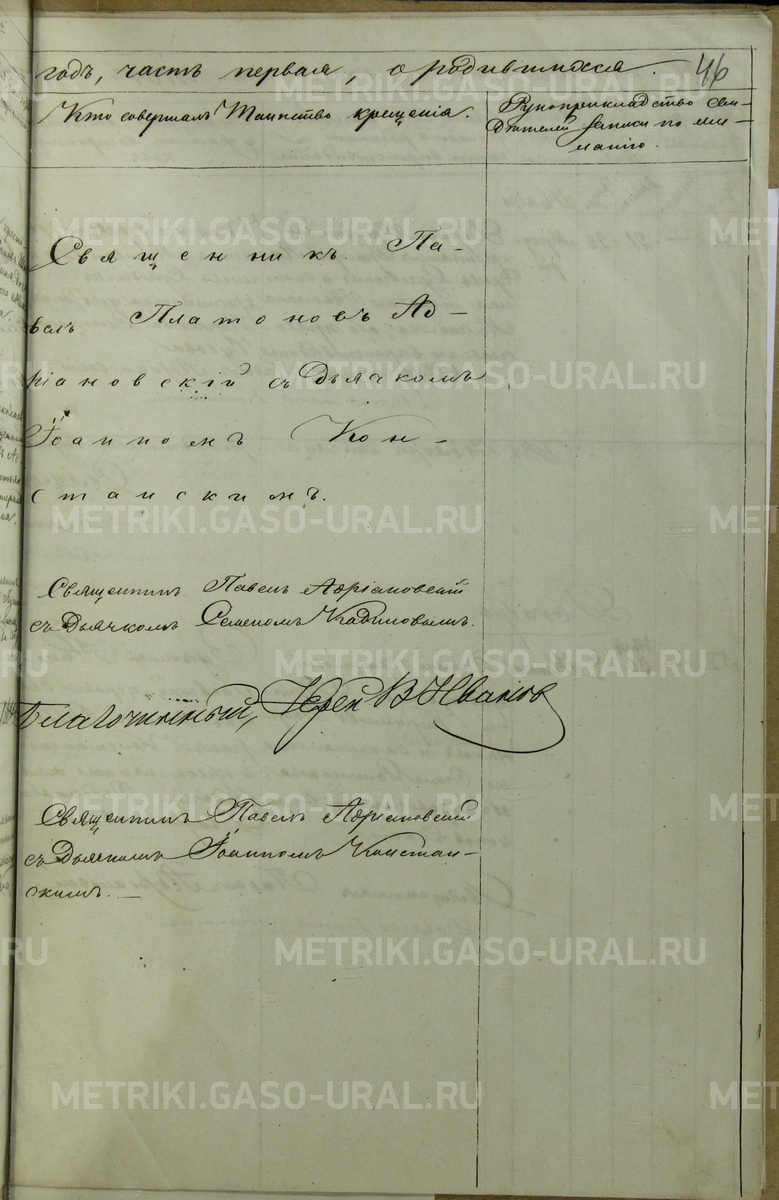 годъ, часть первая, о родившихся. 46
Кто совершалъ Таинство крещенія.
Рукоприкладство сви-
дѣтелей записи по же-
ланію.
Священникъ Па-
велъ Платоновъ Ад-
ріановскій съ дьячкомъ
Іоанномъ Кон-
станскимъ.
Священникъ Павелъ Адріановскій
съ дьячкомъ Семеномъ
Благочинный, Іерей В Ивановъ
Священникъ Павелъ Адріановскій
съ дьячкомъ Іоанномъ Констан-
скимъ.
METRIKI.GASO-URAL.RU